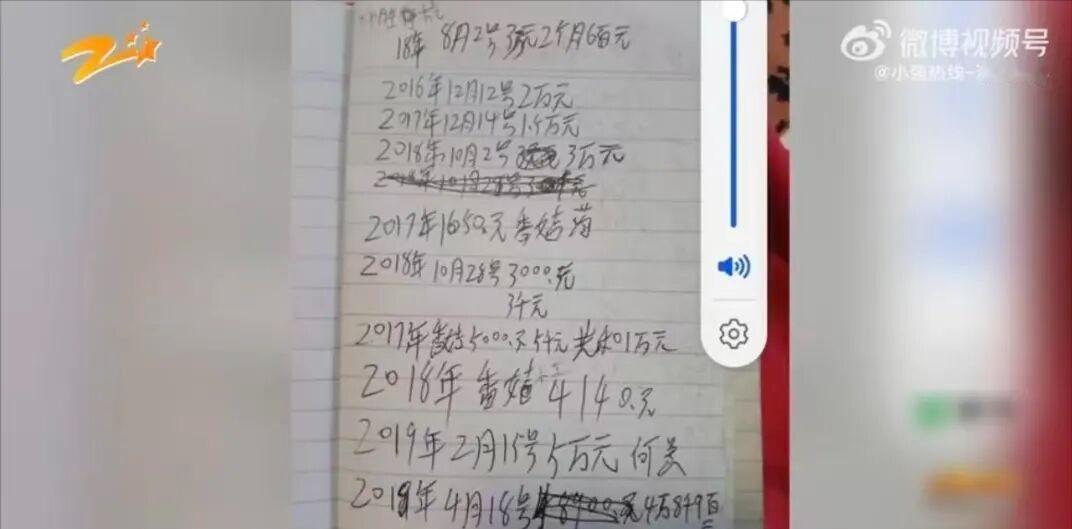 微博视频号
@小强热线-
18年 8月2号3万元2个月6百元
2016年12月12号2万元
2017年12月14号1.5万元
2018年10月2号 3万元
2017年1650.元番姞苗
2018年10月28号3000.元
3千元
2017年番姞5000.元5千元共和1万元
2018年番姞4140.元
2019年2月15号5万元
2019年4月18号 4万8千9百